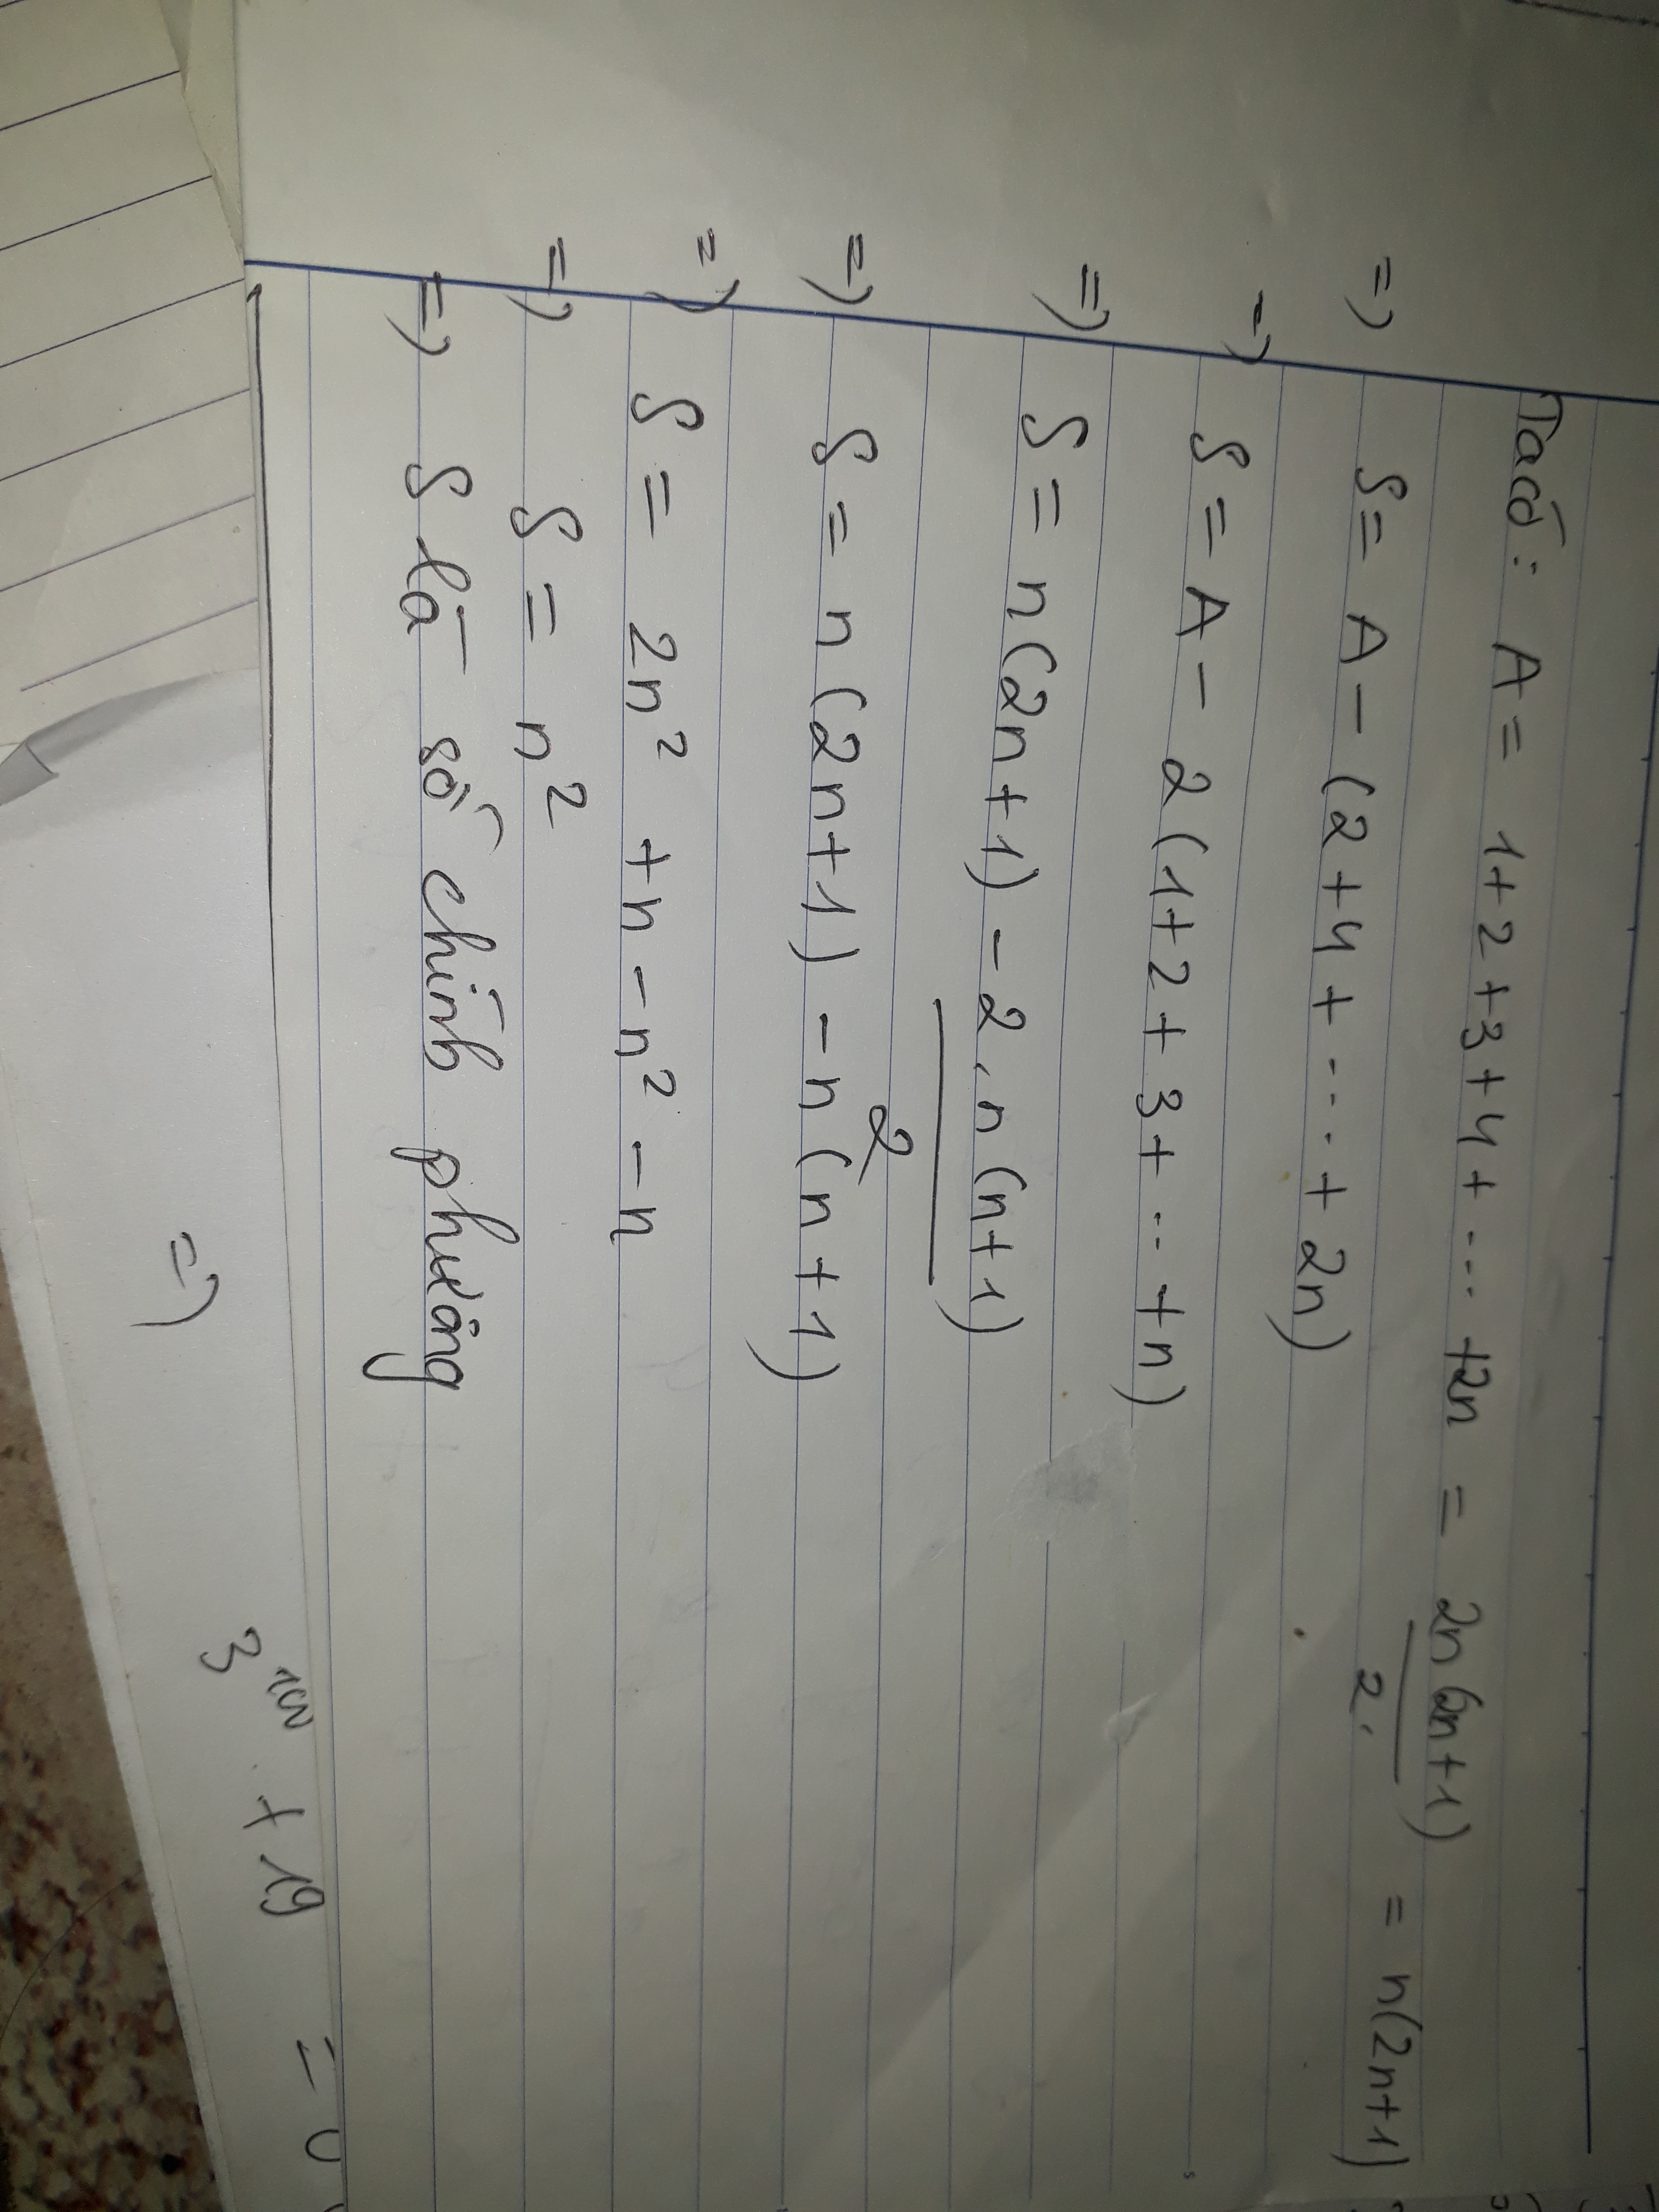 Ta có: A = 1+2+3+4+ ... +2n = 2n(2n+1)/2 = n(2n+1)
=) S = A - (2+4+ ... + 2n)
=) S = A - 2(1+2+3+ ... +n)
=) S = n(2n+1) - 2.n(n+1)/2
=) S = n(2n+1) - n(n+1)
=) S = 2n² + n - n² - n
=) S = n²
=) S là số chính phương
=) 3¹⁰⁰ + 19 =